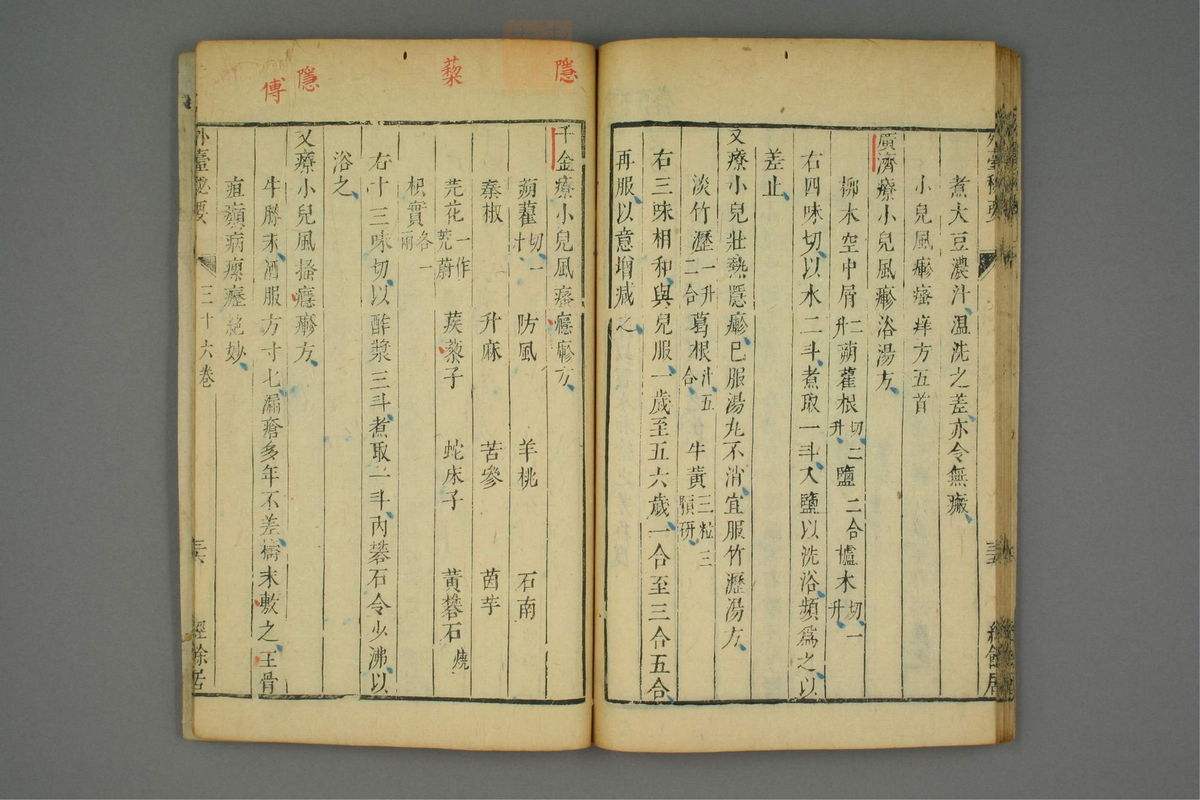 煮大豆濃汁温洗之差亦令無瘢
小兒風瘮瘙痒方五首
廣濟療小兒風瘮浴湯方
柳木空中屑二升 蒴藋根切二升 鹽二合 櫨木切一升
右四味切以水二斗煮取一斗入鹽以洗浴頻爲之以
差止
又療小兒壯熱隱瘮已服湯丸不消宜服竹瀝湯方
淡竹瀝一升二合 葛根汁五合 牛黃三粒三顆研
右三味相和與兒服一歲至五六歲一合至三合五合
再服以意增減之
隱
藜
隱
傅
千金療小兒風瘙癮瘮方
蒴藋切一 防風 羊桃 石南
秦椒 升麻 苦參 茵芋
芫花一作芫蔚 蒺藜子 蛇床子 黃礬石燒
枳實各一兩
右十三味切以酢漿三斗煮取二斗內礬石令少沸以
浴之
又療小兒風搔癮瘮方
牛膝末酒服方寸匕漏瘡多年不差擣末敷之主骨
疽癲病瘰癧絕妙
外臺秘要 三十六卷 經餘居